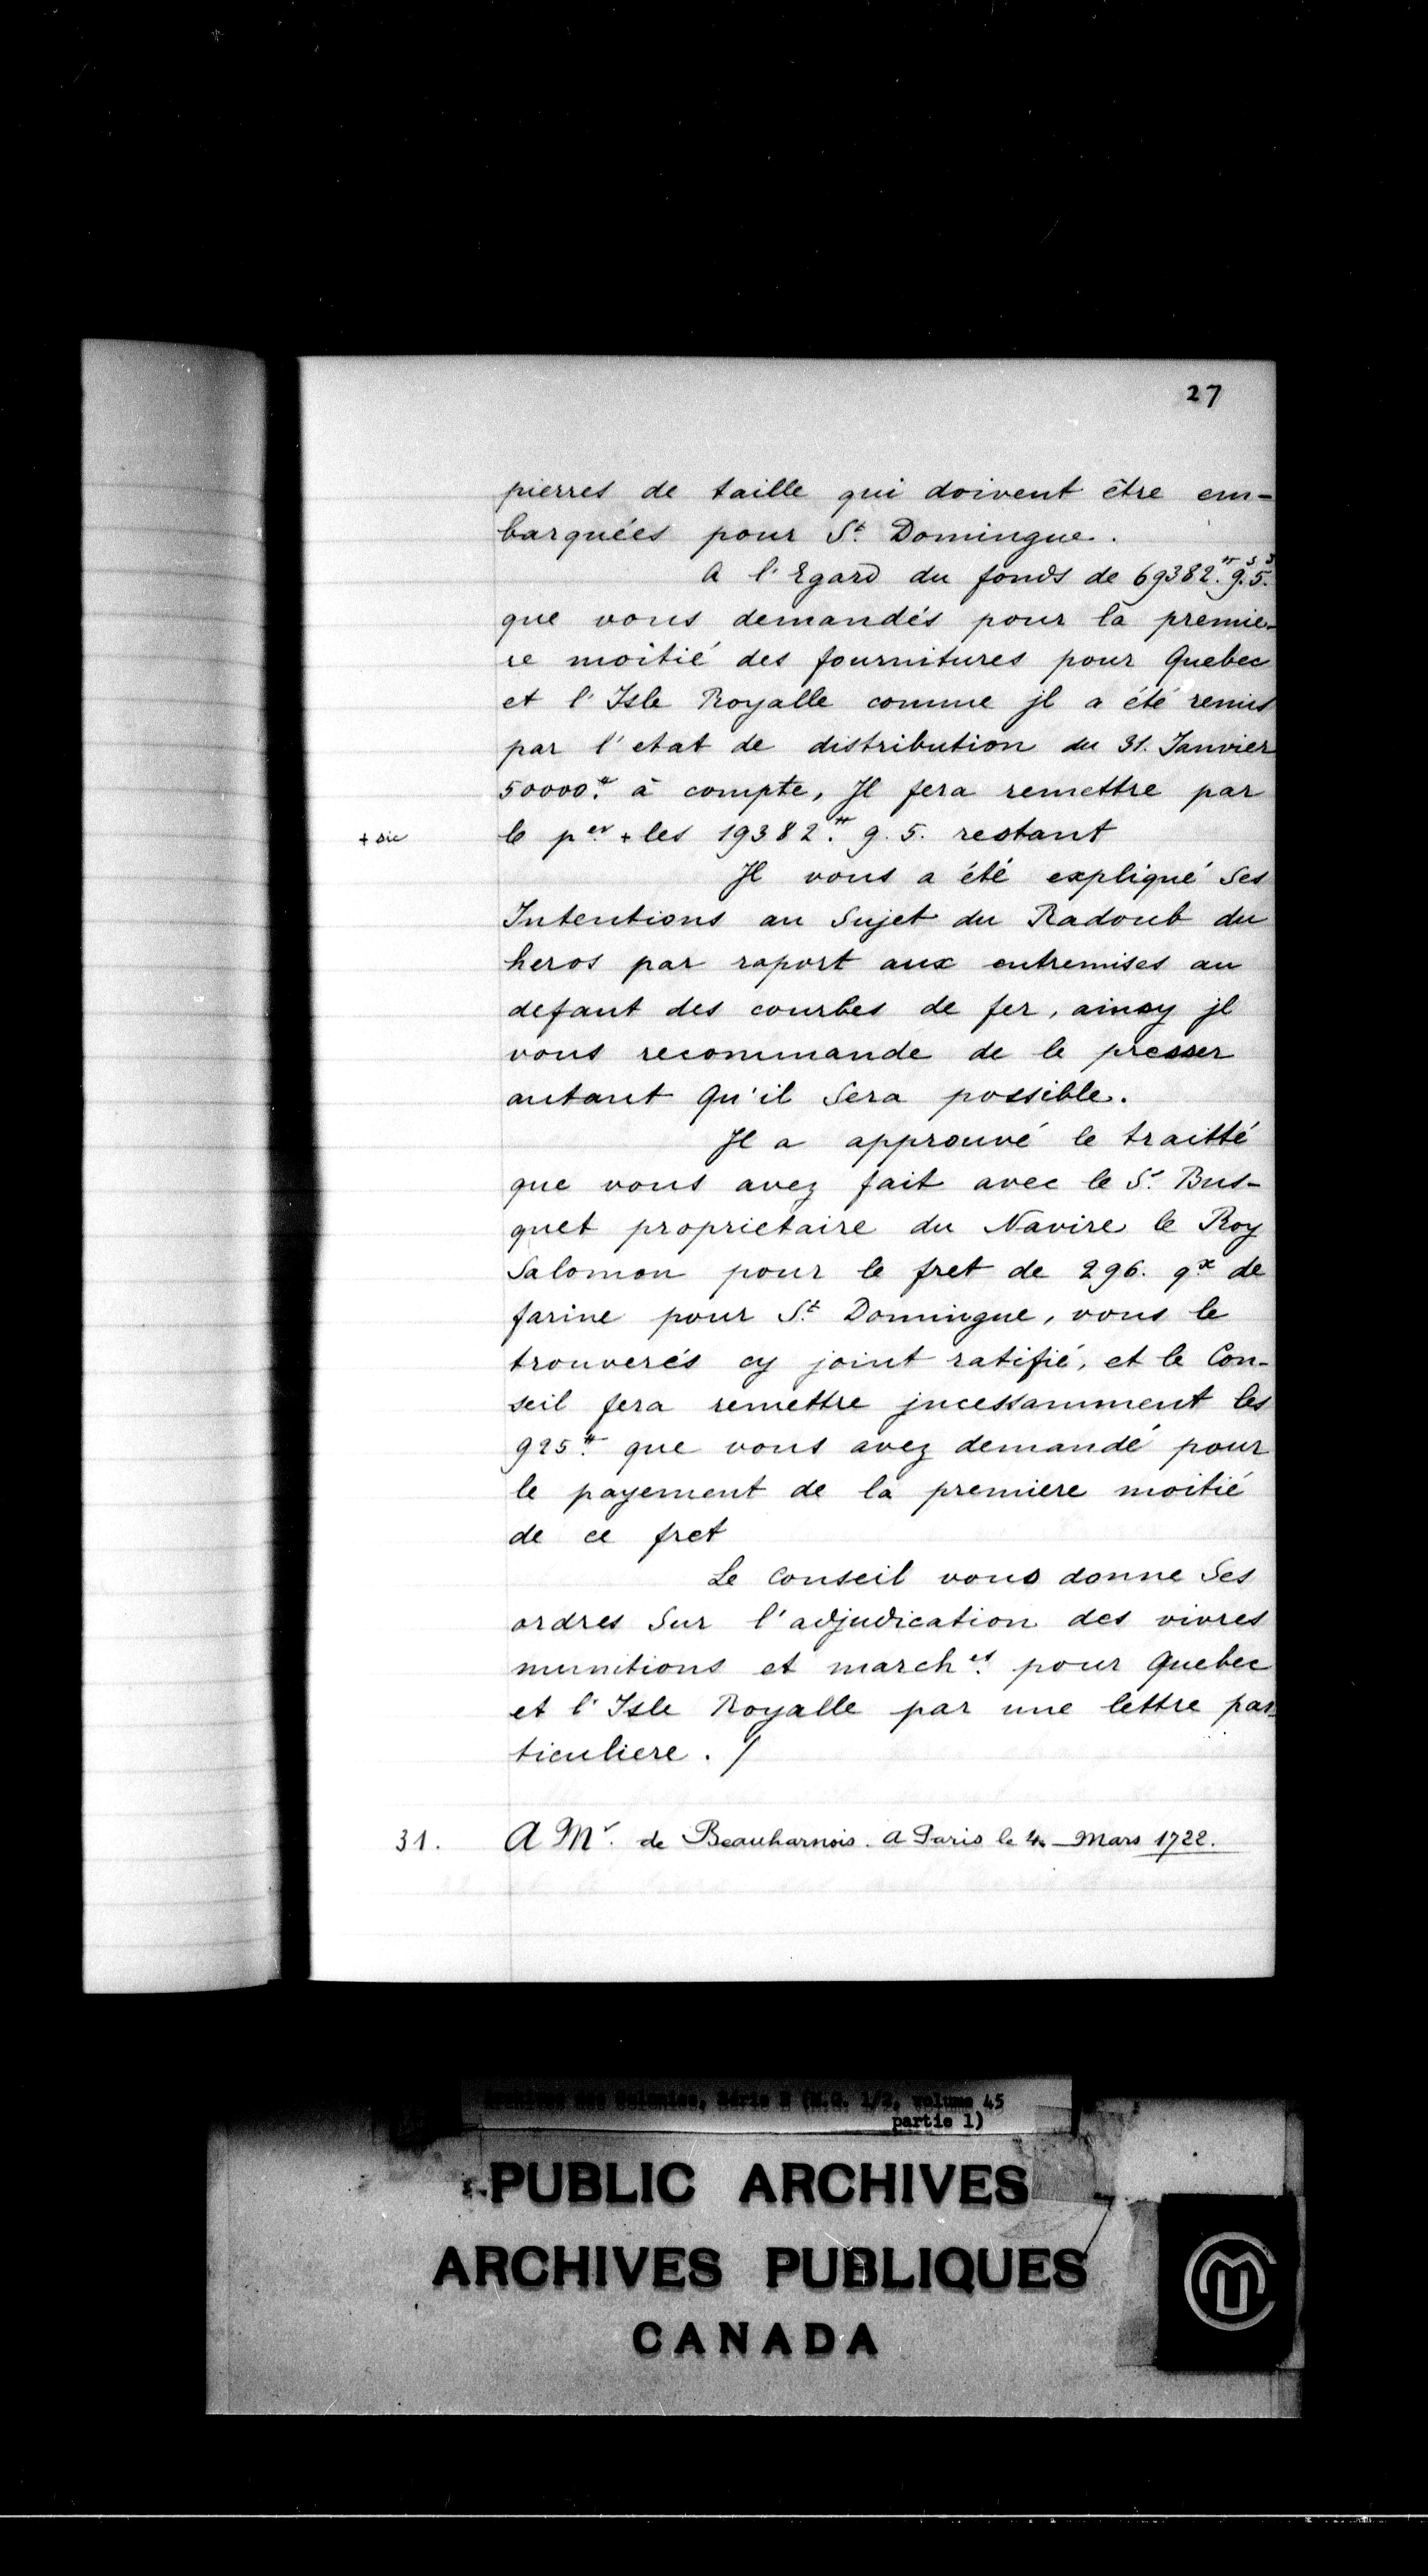 27
pierres de taille qui doivent être em-
barquées pour St. Domingue.
A l'Egard du fonds de 69382.# 9.s 5.d
que vous demandés pour la premie-
re moitié des fournitures pour Quebec
et l'Isle Royalle comme jl a été remis
par l'etat de distribution du 31. Janvier
50000.# à compte, Jl fera remettre par
+ sic
le per + les 19382.# 9. 5. restant
Jl vous a été expliqué Ses
Intentions au Sujet du Radoub du
heros par raport aux entremises au
defaut des courbes de fer, ainsy jl
vous recommande de le presser
autant qu'il Sera possible.
Jl a approuvé le traitté
que vous avez fait avec le Sr. Bus-
quet proprietaire du Navire le Roy
Salomon pour le fret de 296. qx de
farine pour St. Domingue, vous le
trouverés cy joint ratifié, et le Con-
seil fera remettre jncessamment les
925.# que vous avez demandé pour
le payement de la premiere moitié
de ce fret
Le Conseil vous donne Ses
ordres Sur l'adjudication des vivres
munitions et marches. pour Quebec
et l'Isle Royalle par une lettre par-
ticuliere. /
31. A Mr. de Beauharnois. A Paris le 4 - Mars 1722.
Archives des Colonies, Série B (M.G. 1/2, volume 45
partie 1)
PUBLIC ARCHIVES
ARCHIVES PUBLIQUES
CANADA